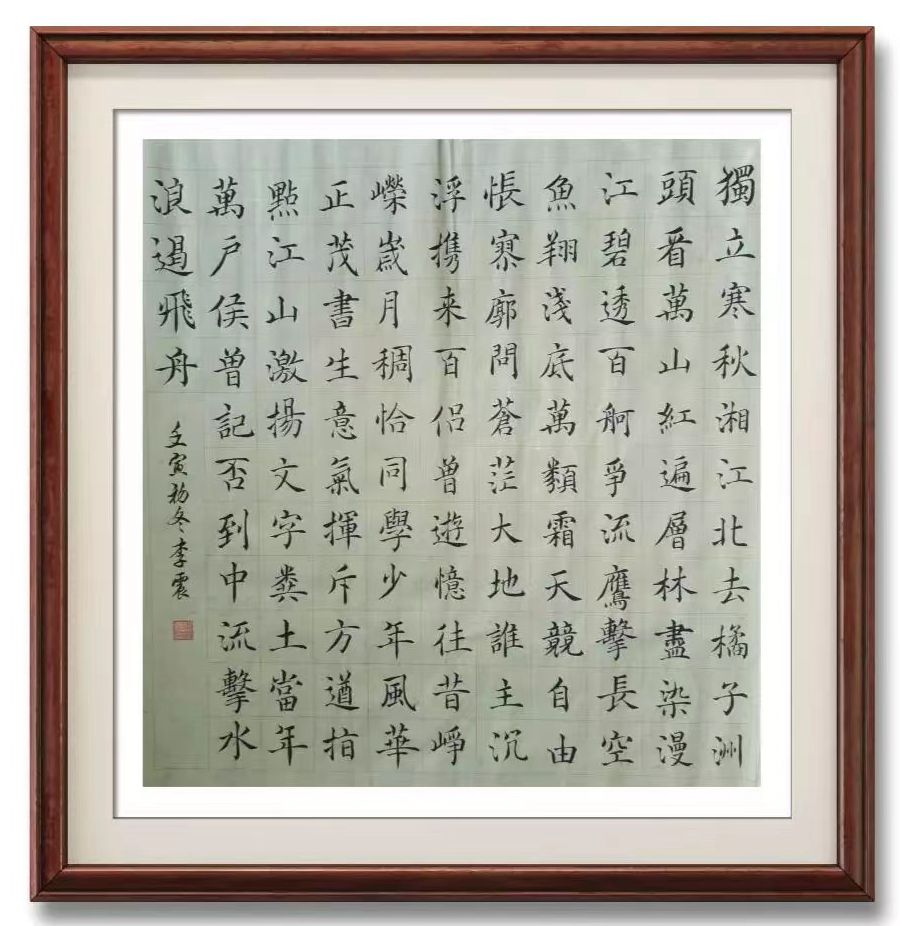 獨立寒秋湘江北去橘子洲
頭看萬山紅遍層林盡染漫
江碧透百舸爭流鷹擊長空
魚翔淺底萬類霜天競自由
悵寥廓問蒼茫大地誰主沉
浮携来百侣曾遊憶往昔崢
嶸嵗月稠恰同學少年風華
正茂書生意氣揮斥方遒指
點江山激揚文字糞土當年
萬户侯曾記否到中流擊水
浪遏飛舟
壬寅初冬李震